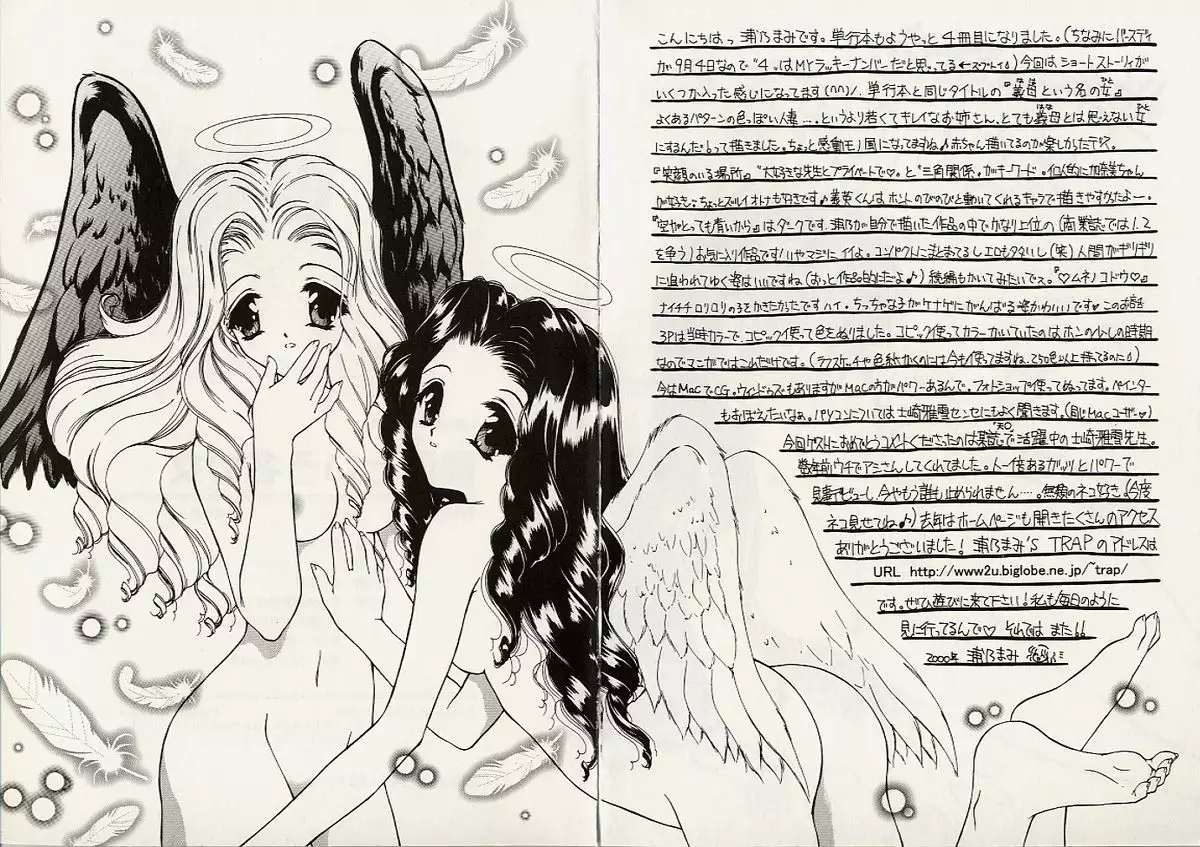 こんにちはっ 浦乃まみです。単行本もようやっと4冊目になりました。(ちなみにバースディ
が9月4日なので"4"はMYラッキーナンバーだと思ってる ) 今回はショートストーリィが
いくつか入った感じになってます(^^)/. 単行本と同じタイトルの『義母という名の女』
よくあるパターンの色っぽい人妻…というより若くてキレイなお姉さん、とても義母とは思えない女
にするんだ!って描きました。ちょっと感動モノ風になってますね♪赤ちゃん描いてるのが楽しかったデス。
『笑顔のいる場所』"大好きな先生とプライベートで♡"と"三角関係"がキーワード。個人的に加奈美ちゃん
が好き。ちょっとズルイオトナも好きです♪義英くんはホントのびのびと動いてくれるキャラで描きやすかったよー。
『空がとっても青いから』はダークです。浦乃が自分で描いた作品の中でかなり上位の(商業誌では1、2
を争う)お気に入り作品です!いやマジにイイよ。コンパクトにまとまってるしエロもタカいし(笑)人間がギリギリ
に追われてゆく姿はいいですね(おっと作品的にだよ♪)続編もかいてみたいでス。『♡ムネノコドウ♡』
ナイチチロリロリのコをかきたかったですハイ。ちっちゃな子がケナゲにがんばる姿かわいいです♥このお話
3Pは当時カラーで、コピック使って色をぬりました。コピック使ってカラーかいていたのはホンの少しの時期
なのでマンガではこれだけです。(ラフスケッチや色紙かくのには今も使ってますね、250色以上持ってるのだ)
今はMacでCG。ウィンドゥズもありますがMacの方がパワーあるんで。フォトショップ使ってぬってます。ペインター
もおぼえたいなぁ。パソコンについては土崎雅雪センセにもよく聞きます。(同じMacユーザー♡)
今回ゲストにおめでとうコメントくださったのは某誌で活躍中の土崎雅雪先生。
数年前ウチでアシさんしてくれてました。人一倍あるガッツとパワーで
見事デビューし、今やもう誰も止められません…。無類のネコ好き(今度
ネコ見せてね♪)去年はホームページも開きたくさんのアクセス
ありがとうございました！浦乃まみ'S TRAPのアドレスは
URL http://www2u.biglobe.ne.jp/~trap/
です。ぜひ遊びに来て下さい！私も毎日のように
見に行ってるんで♡ それでは また!!
2000年 浦乃まみ